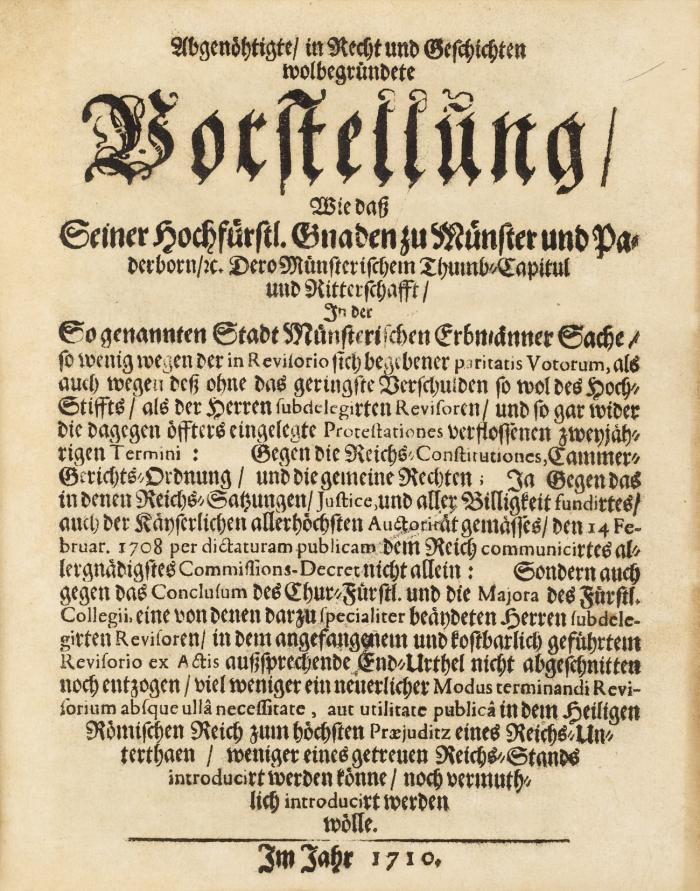 Abgenöhtigte/ in Recht und Geschichten
wolbegründete
Vorstellung/
Wie daß
Seiner Hochfürstl. Gnaden zu Münster und Pa-
derborn/ꝛc. Dero Münsterischem Thumb-Capitul
und Ritterschafft/
In der
So genannten Stadt Münsterischen Erbmänner Sache/
so wenig wegen der in Revisorio sich begebener paritatis Votorum, als
auch wegen deß ohne das geringste Verschulden so wol des Hoch-
Stiffts/ als der Herren subdelegirten Revisoren/ und so gar wider
die dagegen öffters eingelegte Protestationes verflossenen zweyjäh-
rigen Termini : Gegen die Reichs-Constitutiones, Cammer-
Gerichts-Ordnung/ und die gemeine Rechten; Ja Gegen das
in denen Reichs-Satzungen/ Justice, und aller Billigkeit fundirtes/
auch der Käyserlichen allerhöchsten Auctorität gemässes/ den 14 Fe-
bruar. 1708 per dictaturam publicam dem Reich communicirtes al-
lergnädigstes Commissions-Decret nicht allein : Sondern auch
gegen das Conclusum des Chur-Fürstl. und die Majora des Fürstl.
Collegii, eine von denen darzu specialiter beäydeten Herren subdele-
girten Revisoren/ in dem angefangenem und kostbarlich geführtem
Revisorio ex Actis außsprechende End-Urthel nicht abgeschnitten
noch entzogen/ viel weniger ein neuerlicher Modus terminandi Revi-
sorium absque ullâ necessitate, aut utilitate publicâ in dem Heiligen
Römischen Reich zum höchsten Præjuditz eines Reichs-Un-
terthaen/ weniger eines getreuen Reichs-Stands
introducirt werden könne/ noch vermuth-
lich introducirt werden
wölle.
Im Jahr 1710.